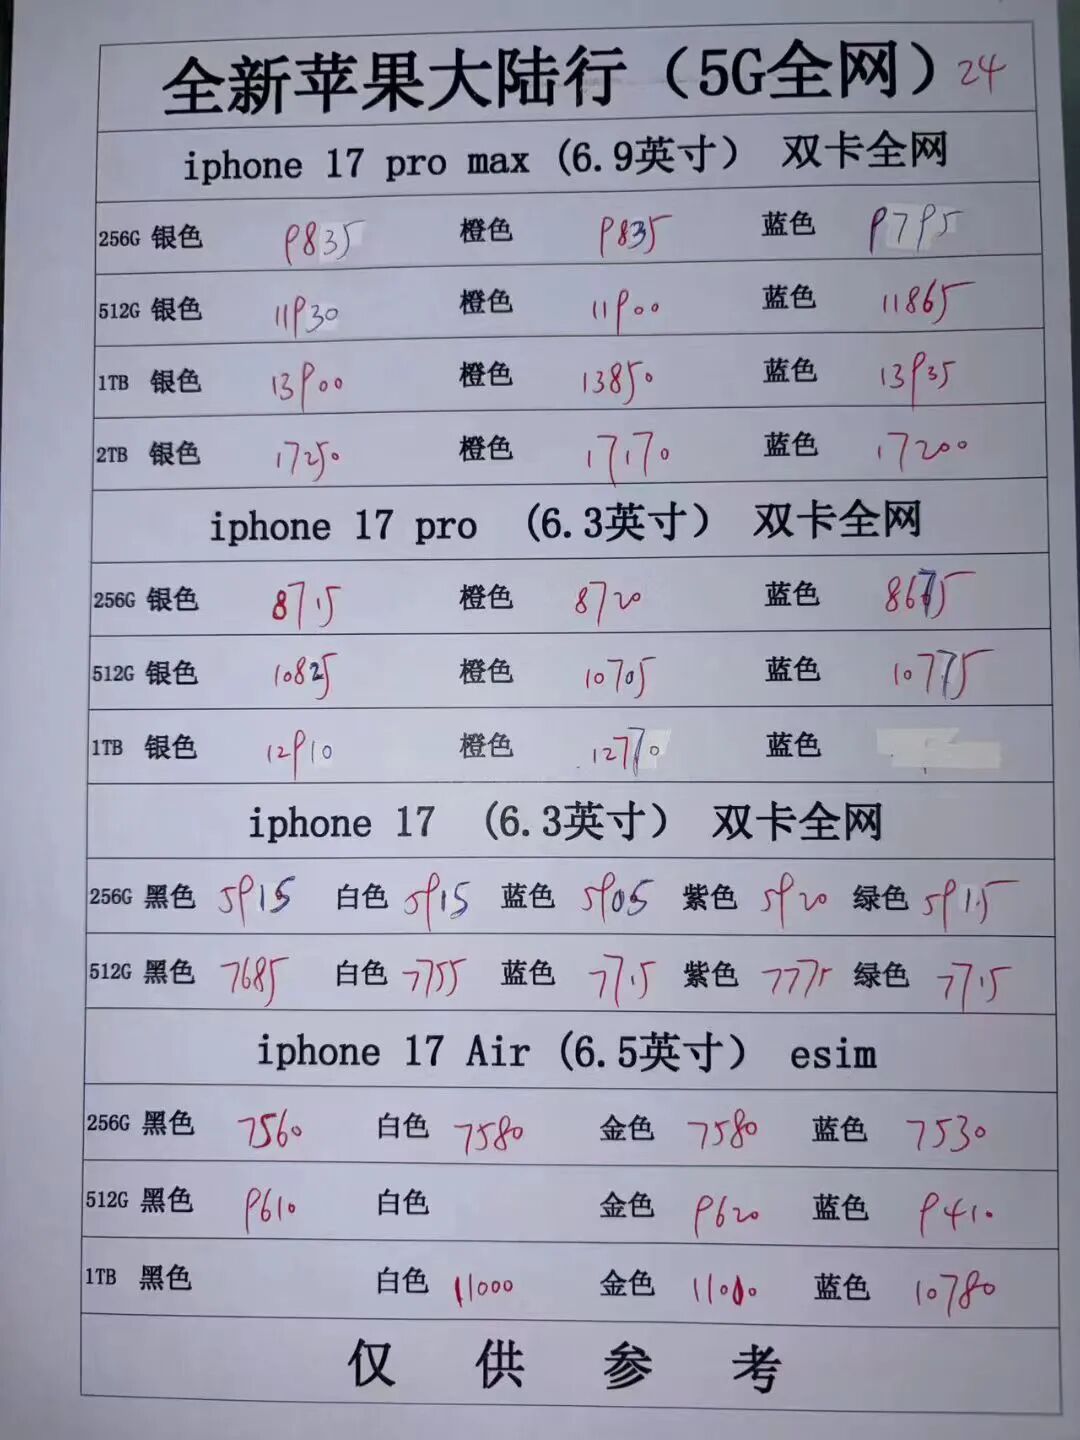 全新苹果大陆行（5G全网）24
iphone 17 pro max (6.9英寸） 双卡全网
256G 银色 9835 橙色 9835 蓝色 9795
512G 银色 11930 橙色 11900 蓝色 11865
1TB 银色 13900 橙色 13850 蓝色 13935
2TB 银色 17250 橙色 17170 蓝色 17200
iphone 17 pro （6.3英寸） 双卡全网
256G 银色 8715 橙色 8720 蓝色 8675
512G 银色 10825 橙色 10705 蓝色 10775
1TB 银色 12910 橙色 12770 蓝色
iphone 17 （6.3英寸） 双卡全网
256G 黑色 5915 白色 5915 蓝色 5905 紫色 5920 绿色 5915
512G 黑色 7685 白色 7755 蓝色 7715 紫色 7775 绿色 7715
iphone 17 Air (6.5英寸） esim
256G 黑色 7560 白色 7580 金色 7580 蓝色 7530
512G 黑色 9610 白色 金色 9620 蓝色 9410
1TB 黑色 白色 11000 金色 11000 蓝色 10780
仅供参考